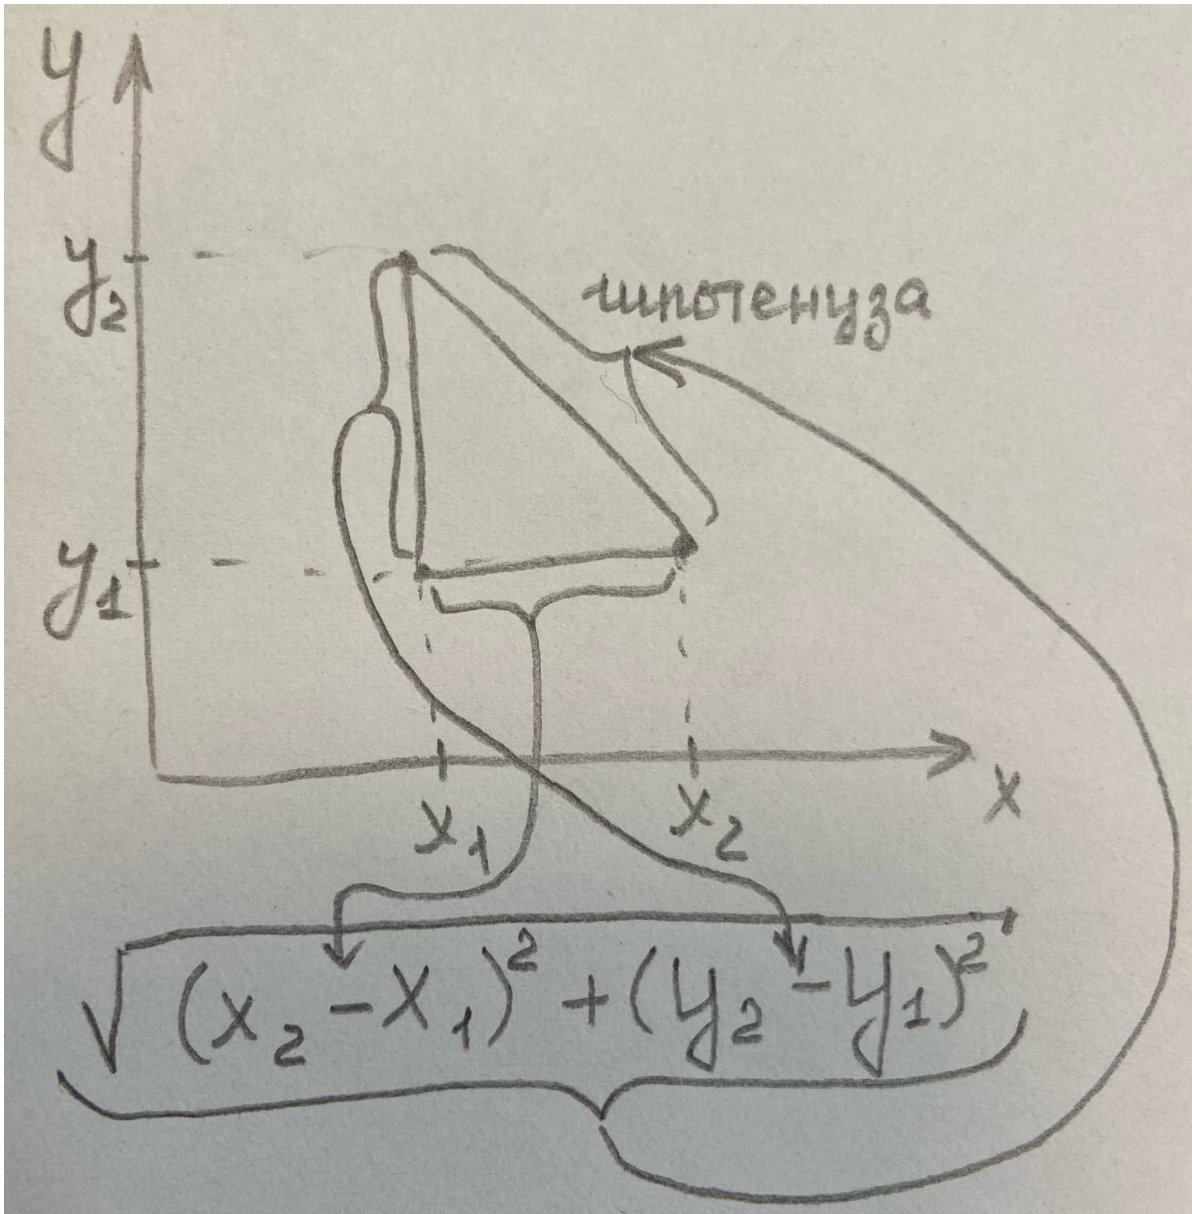 y
y₂
гипотенуза
y₁
x
x₁ x₂
√(x₂ - x₁)² + (y₂ - y₁)²